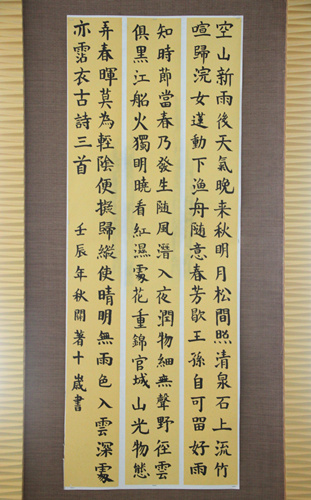 空山新雨後天氣晚来秋明月松間照清泉石上流竹
喧歸浣女蓮動下漁舟随意春芳歇王孫自可留好雨
知時節當春乃發生随風潛入夜潤物細無聲野徑雲
俱黑江船火獨明曉看紅濕處花重錦官城山光物態
弄春暉莫為輕陰便擬歸縱使晴明無雨色入雲深處
亦霑衣古詩三首 壬辰年秋關著十歲書